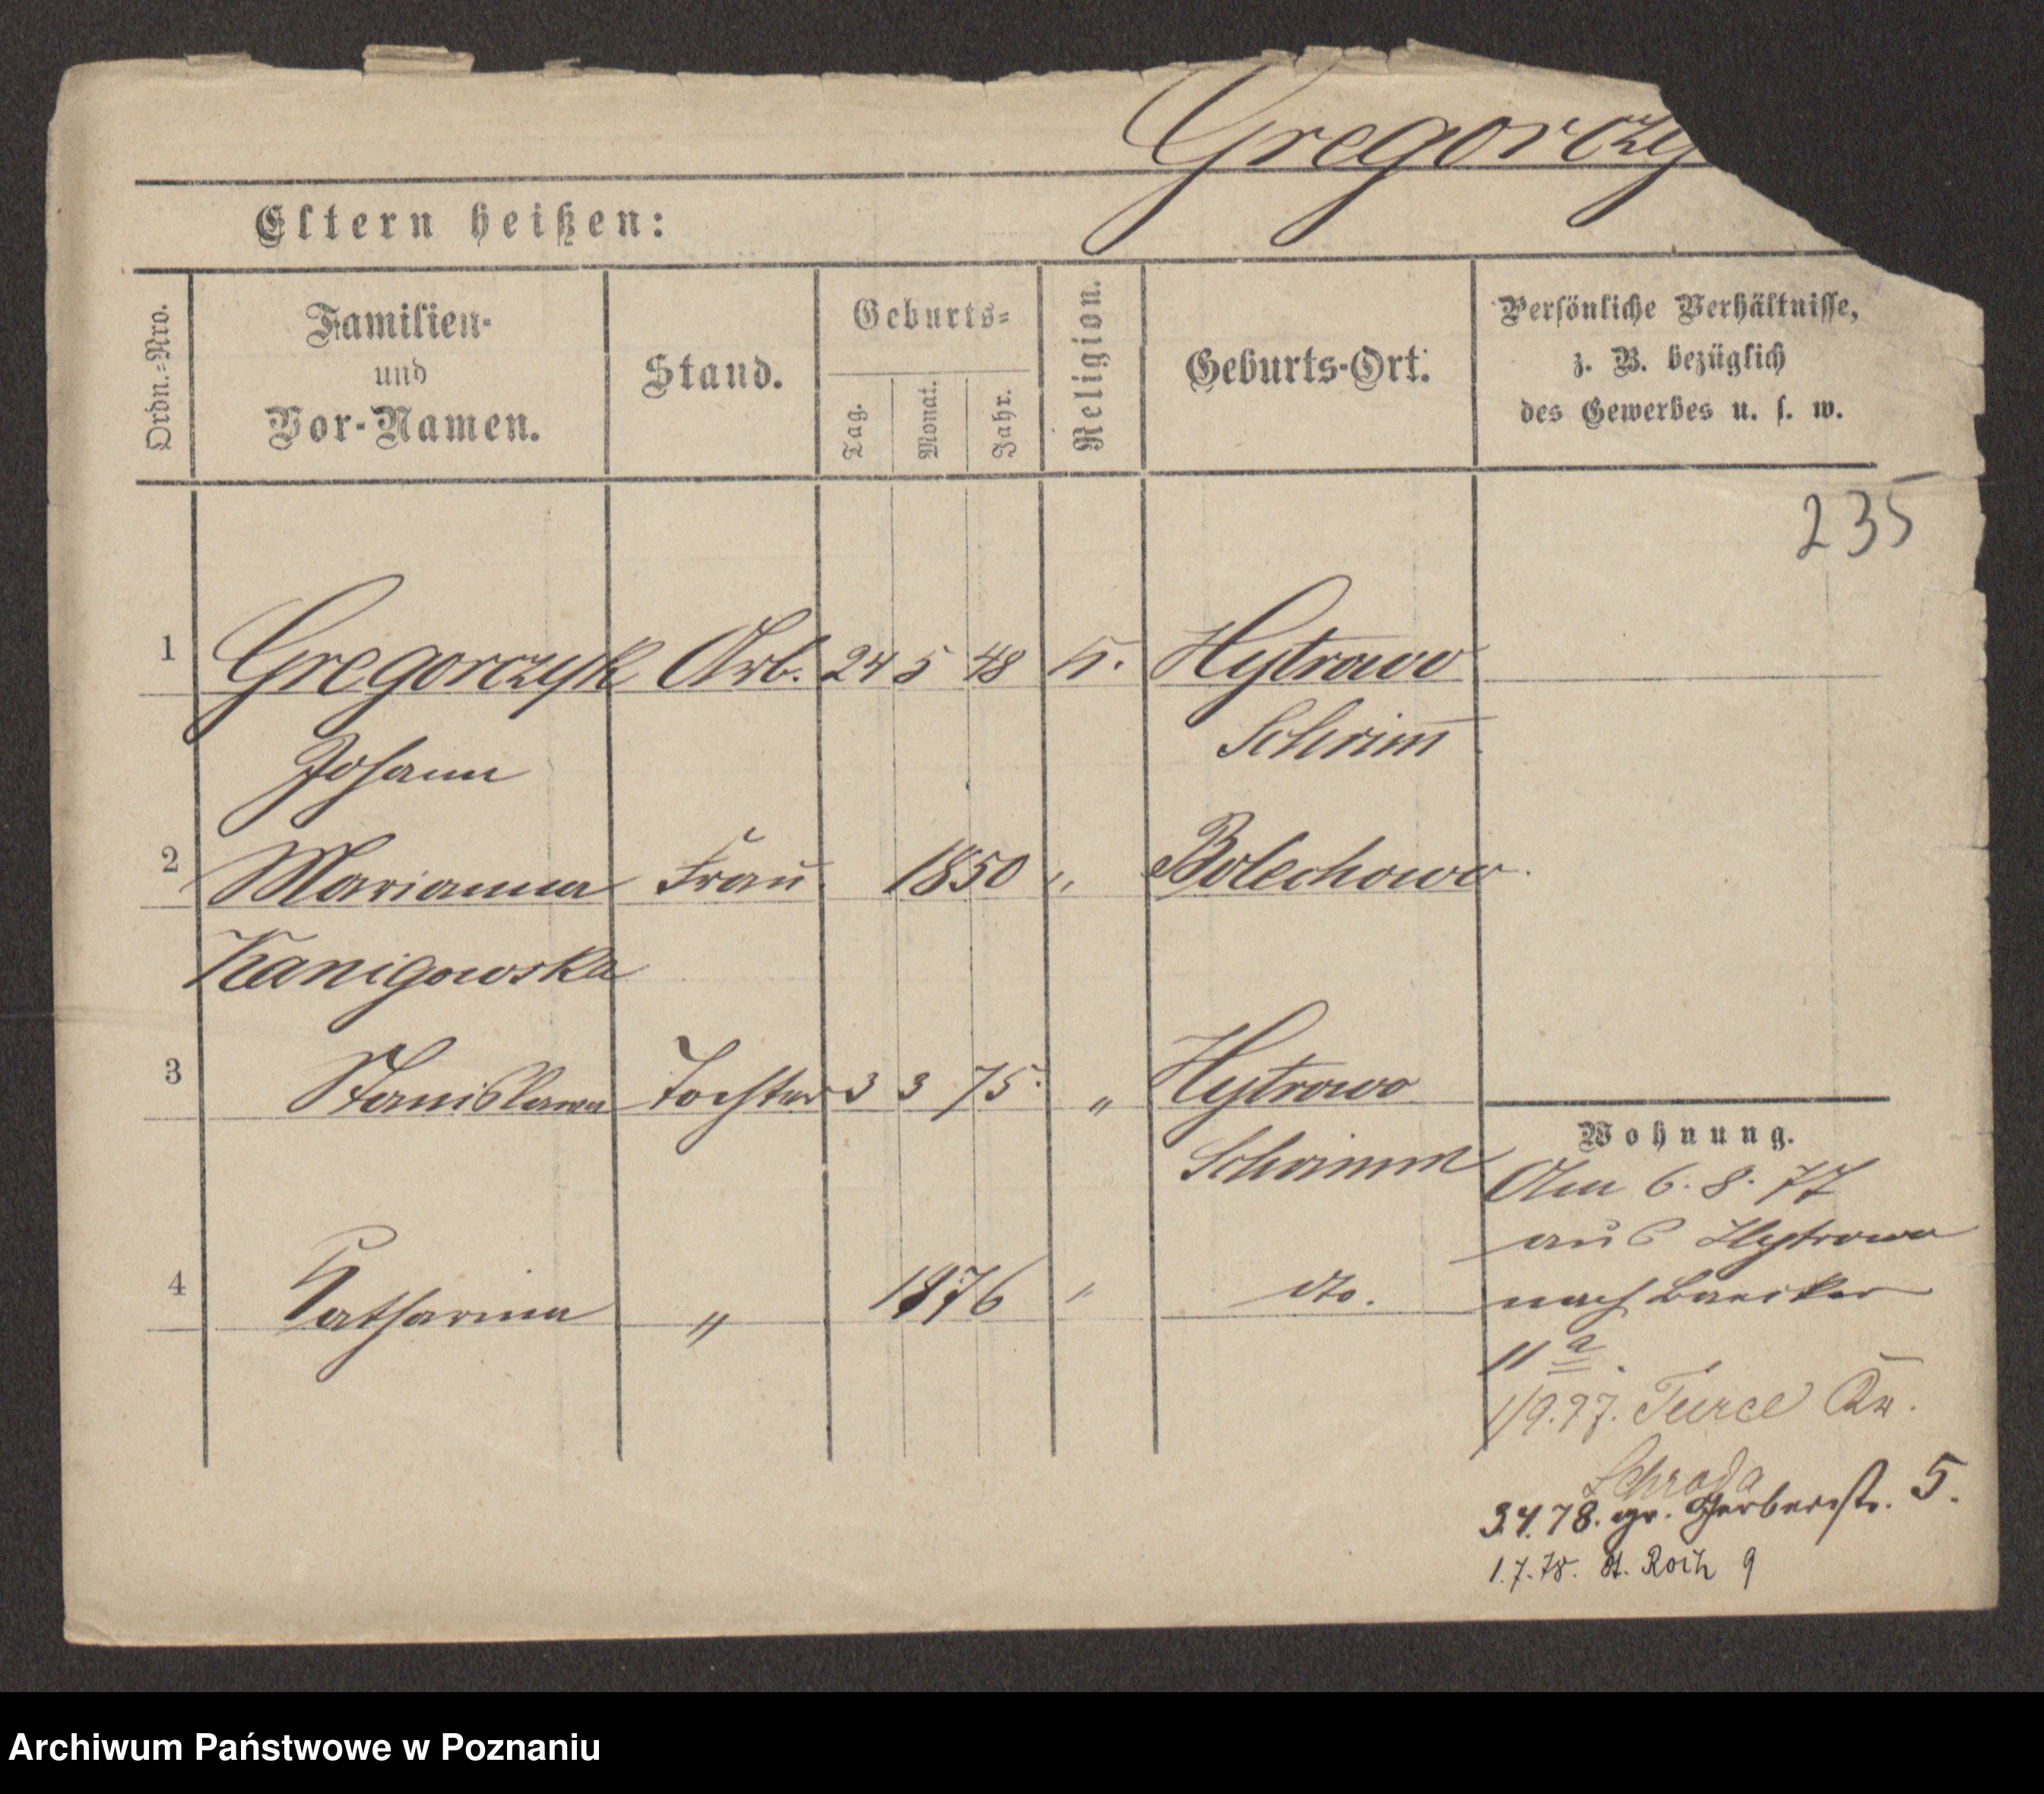 Gregorczy
Eltern heißen:
Ordn.-Nro.
Familien-
und
Vor-Namen.
Stand.
Geburts-
Tag.
Monat.
Jahr.
Religion.
Geburts-Ort.
Persönliche Verhältnisse,
z. B. bezüglich
des Gewerbes u. s. w.
235
1 Gregorczyk Arb. 24 5 48 K. Hytrowo
Johann Schrim̅
2 Marianna Frau 1850 " Bolechowo
Kanigowska
3 Stanislawa Tochter 3 3 75 " Hytrowo
Schrimm
4 Katharina " 1876 " dto.
Wohnung.
Am 6. 8. 77
aus Hytrowo
nach
11 a.
1/9. 77. Kr.
Schroda
3.4.78. gr. Gerberstr. 5.
1.7.78. St. Roch 9
Archiwum Państwowe w Poznaniu